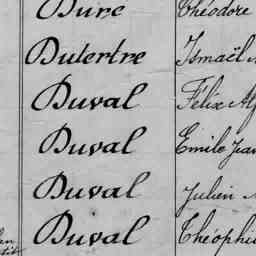 Duré Théodore
Dutertre Ismaël
Duval Félix
Duval Emile Jean
Duval Julien
Duval